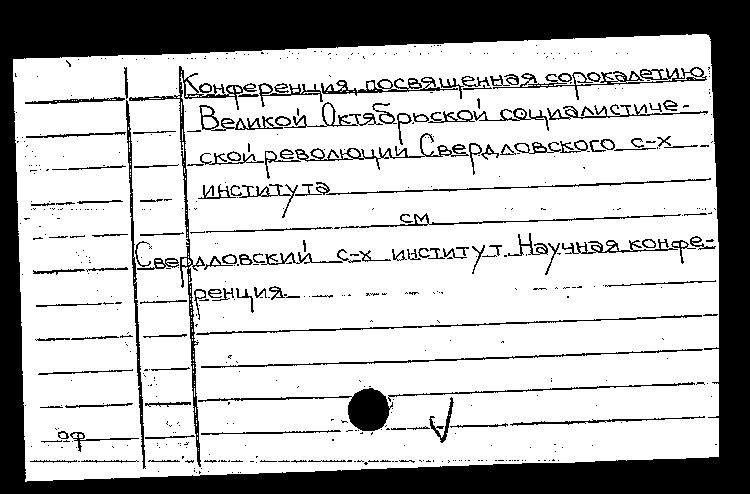 Конференция, посвященная сорокалетию
Великой Октябрьской социалистиче-
ской революции Свердловского с-х
института
см.
Свердловский с-х институт. Научная конфе-
ренция.
оф